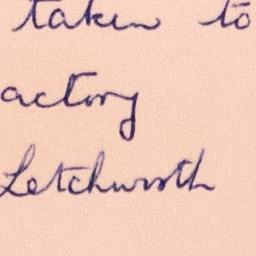 taken to
actory
Letchworth